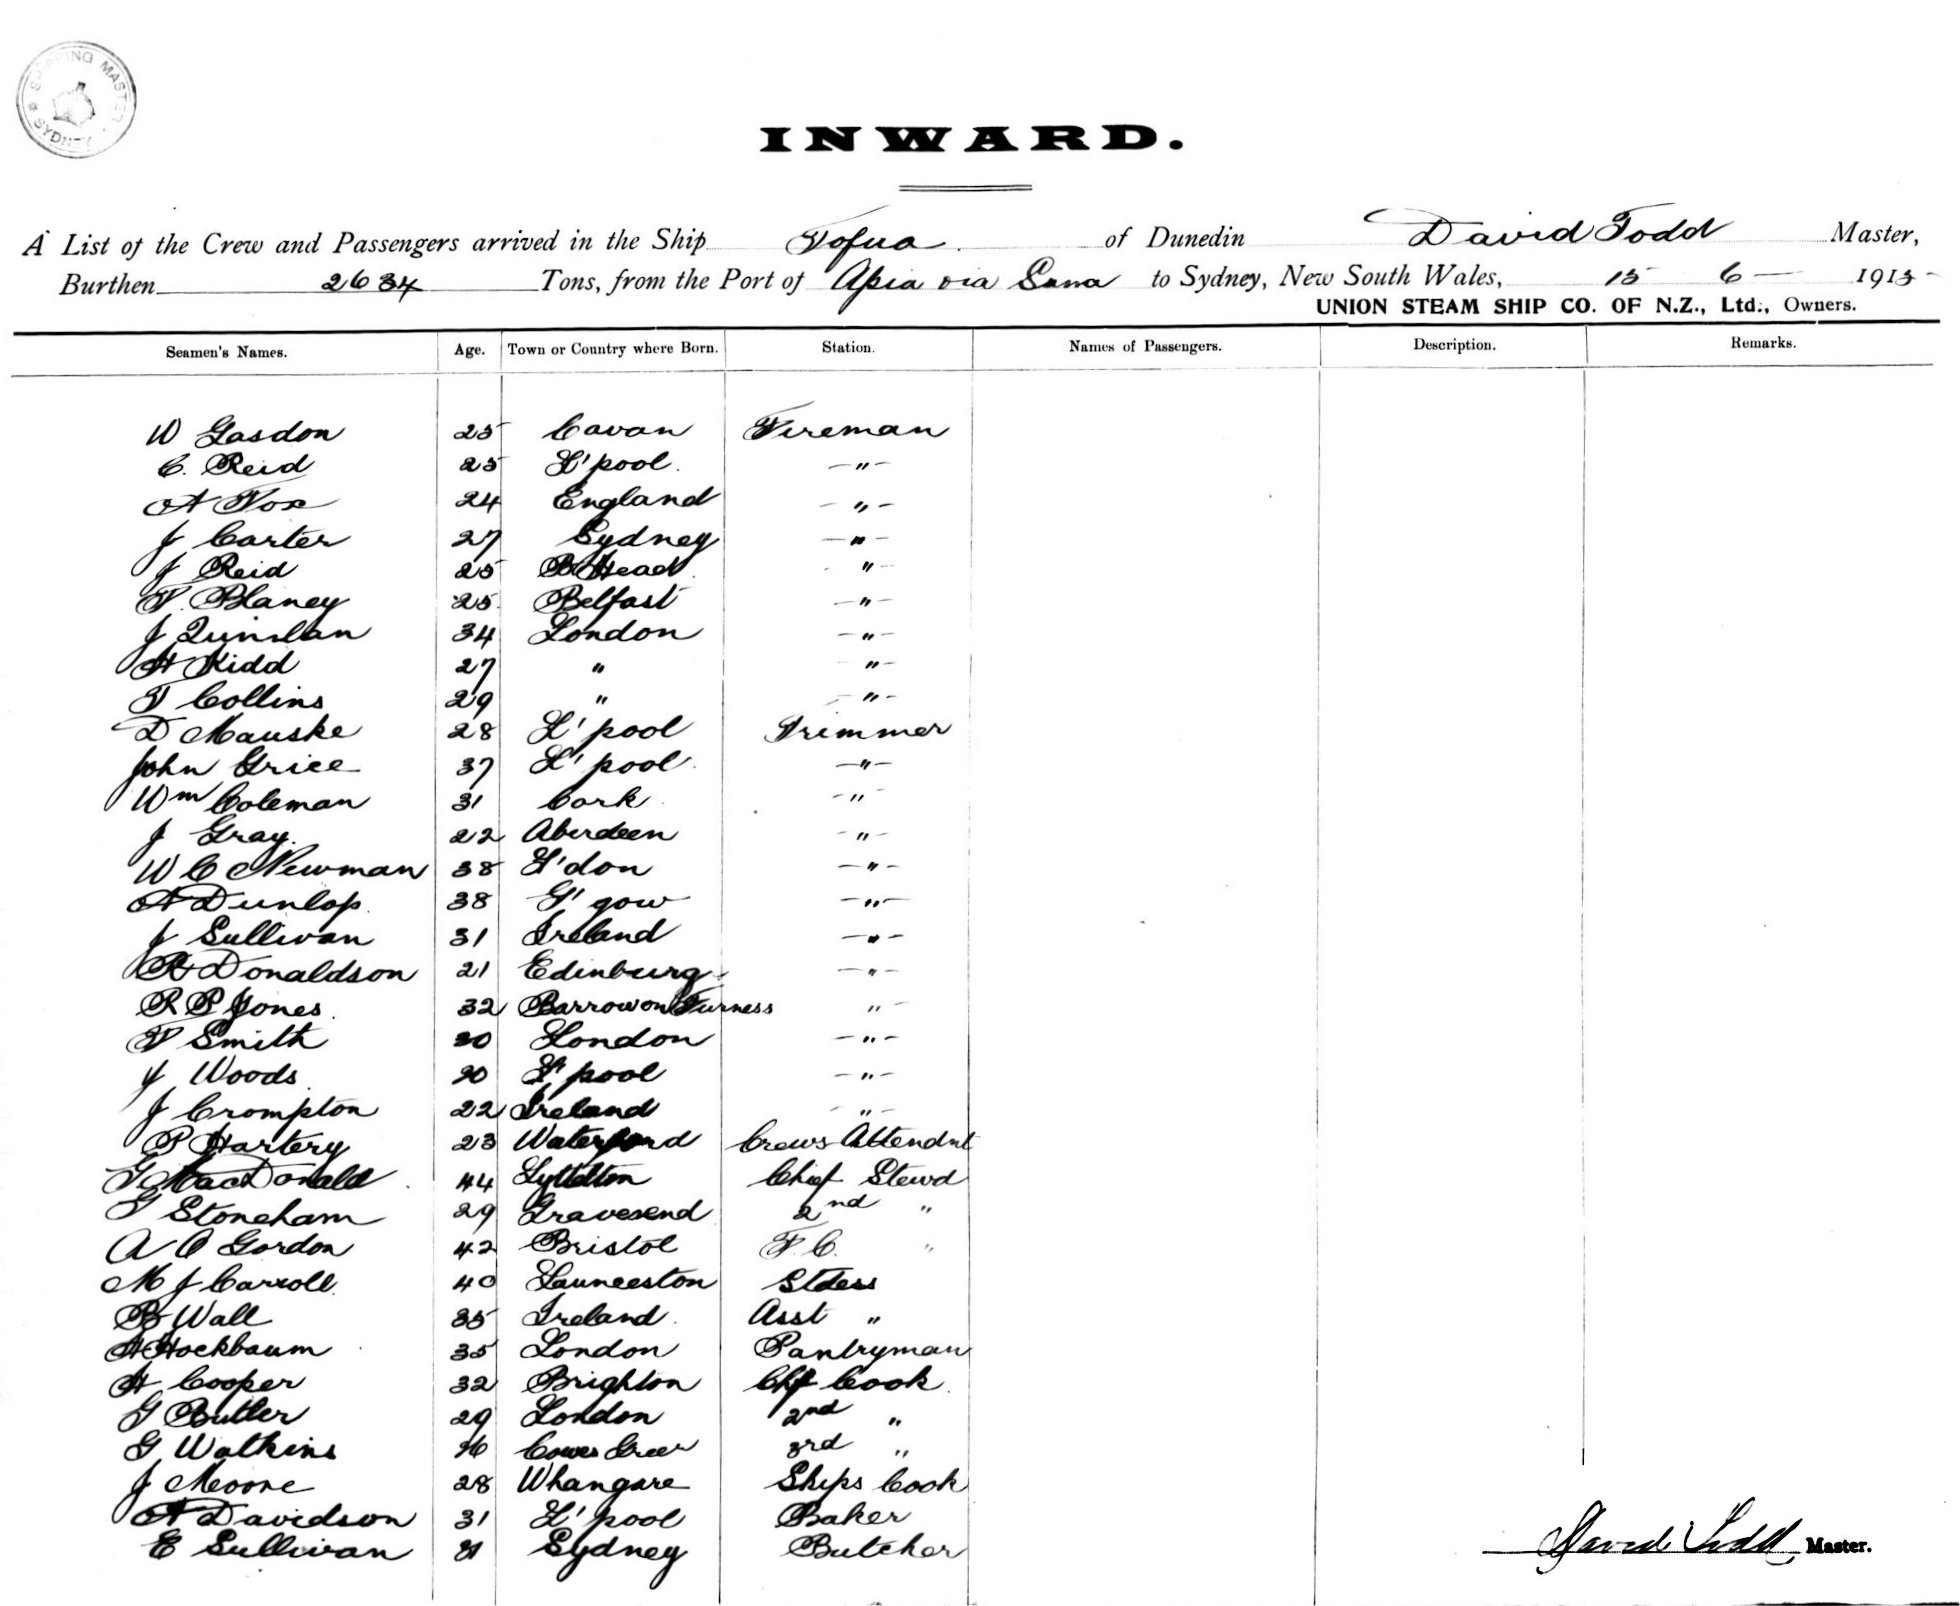 SHIPPING MASTER
* SYDNEY *
INWARD.
A List of the Crew and Passengers arrived in the Ship Tofua of Dunedin David Todd Master,
Burthen 2634 Tons, from the Port of Apia via Suva to Sydney, New South Wales, 15 6 1915
UNION STEAM SHIP CO. OF N.Z., Ltd., Owners.
Seamen's Names. Age. Town or Country where Born. Station. Names of Passengers. Description. Remarks.
W Gasdon 25 Cavan Fireman
C. Reid 25 L'pool. —"—
A Fox 24 England —"—
J Carter 27 Sydney —"—
J Reid 25 B Head "
F. Blaney 25 Belfast —"—
J Quinlan 34 London —"—
H Kidd 27 " —"—
T Collins 29 " —"—
D Mauske 28 L'pool Trimmer
John Grice 37 L'pool. —"—
Wm Coleman 31 Cork —"—
J Gray. 22 Aberdeen —"—
W C Newman 38 L'don —"—
A Dunlop. 38 G'gow —"—
J Sullivan 31 Ireland —"—
R Donaldson 21 Edinburg —"—
R P Jones. 32 Barrow on Furness "—
F Smith 30 London —"—
J Woods 30 L'pool —"—
J Crompton 22 Ireland —"—
P Hartery 23 Waterford Crews Attendnt
G MacDonald 44 Lyttelton Chief Stewd
G Stoneham 29 Gravesend 2nd "
A C Gordon 42 Bristol F. C. "
M J Carroll 40 Launceston Stdess
B Wall 35 Ireland. Asst "
H Hockbaum 35 London Pantryman
H Cooper 32 Brighton Chf Cook
G Butler 29 London 2nd "
G Watkins Cowes 3rd "
J Moore 28 Whangare Ships Cook
A Davidson 31 L'pool Baker
E Sullivan Sydney Butcher
David Todd Master.